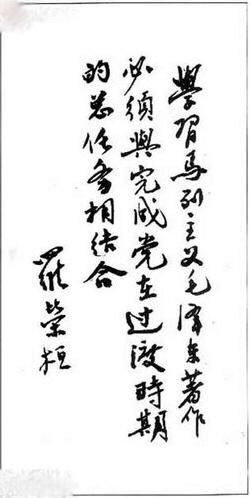 學習馬列主义毛澤东著作
必須與完成党在过渡時期
的总任务相结合
羅榮桓